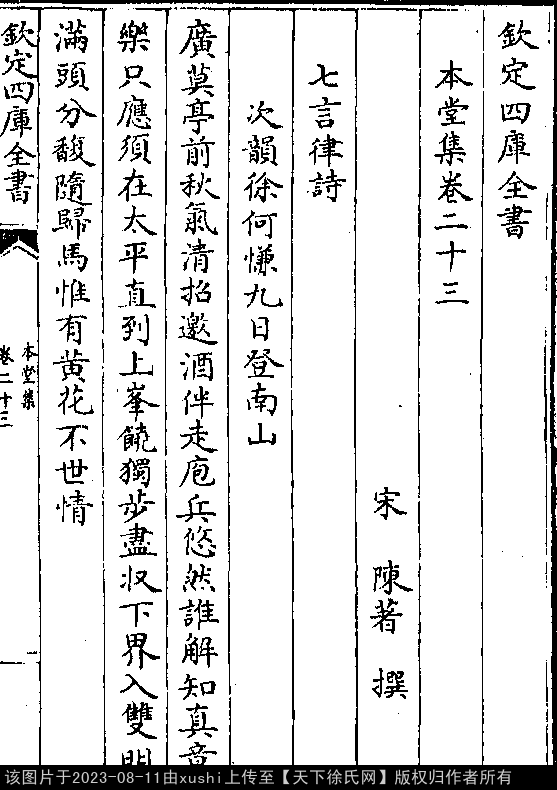 欽定四庫全書
本堂集卷二十三
宋 陳著 撰
七言律詩
次韻徐何慊九日登南山
廣莫亭前秋氣清招邀酒伴走庖兵悠然誰解知真意
樂只應須在太平直到上峯饒獨步盡収下界入雙
滿頭分馥隨歸馬惟有黄花不世情
欽定四庫全書
本堂集
卷二十三
一
该图片于2023-08-11由xushi上传至【天下徐氏网】版权归作者所有